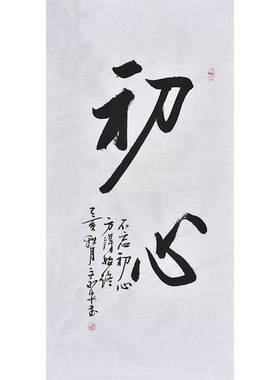 初心
不忘初心
方得始终